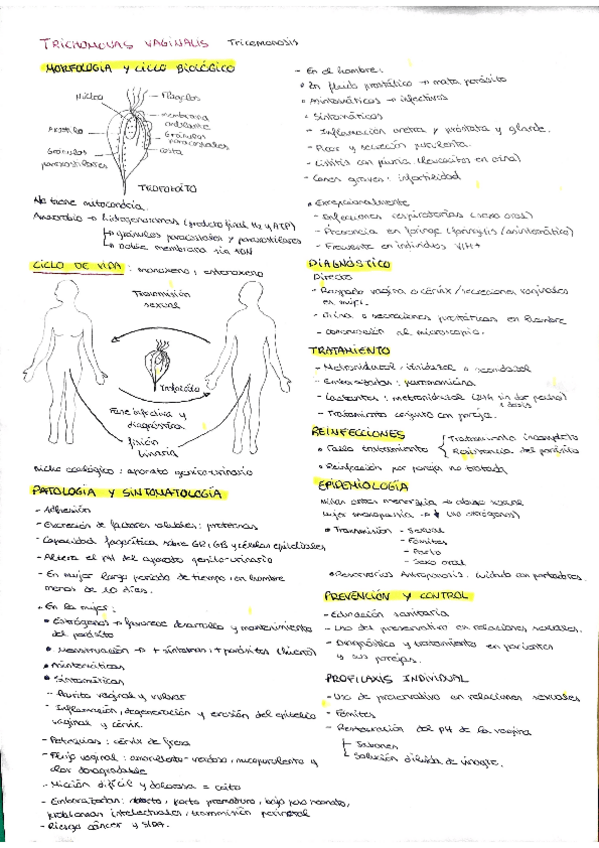 TRICHOMONAS VAGINALIS Tricomonosis
MORFOLOGIA Y CICLO BIOLÓGICO
Núcleo
Flagelos
membrana
ondulante
Axostilo
Gránulos
paracostales
costa
Gránulos
paraxostilares
TROFOZOITO
No tiene mitocondria.
Anaerobio → hidrogenosomas (producto final H2 y ATP)
↳ gránulos paracostales y paraxostilares
↳ Doble membrana sin ADN
CICLO DE VIDA : monoxeno, estenoxeno
Transmisión
sexual
Trofozoito
Fase infectiva y
diagnóstica
fisión
binaria
Nicho ecológico: aparato genito-urinario
PATOLOGIA Y SINTOMATOLOGÍA
- Adhesión
- Excreción de factores solubles: proteinas
- Capacidad fagocítica sobre GR, GB y células epiteliales
- Altera el pH del aparato genito-urinario
- En mujer largo periodo de tiempo, en hombre
menos de 10 dias.
- En la mujer:
• Estrógenos → favorece desarrollo y mantenimiento
del parásito
• Menstruación → + síntomas, + parásitos (hierro)
• Asintomáticas
• Sintomáticas
- Prurito vaginal y vulvar
- Inflamación, degeneración y erosión del epitelio
vaginal y cérvix.
- Petequias: cérvix de fresa
- Flujo vaginal: amarillento-verdoso, mucopurulento y
olor desagradable
- Micción difícil y dolorosa = coito
- Embarazadas: aborto, parto prematuro, bajo peso neonato,
problemas intelectuales, transmisión perinatal
- Riesgo cáncer y SIDA.
- En el hombre:
• En fluido prostático → mata parásito
• Asintomáticos → infectivos
• Sintomáticos
- Inflamación uretra y próstata y glande.
- Picor y secreción purulenta.
- Cistitis con piuria (leucocitos en orina)
- Casos graves: infertilidad
• Excepcionalmente
- Infecciones respiratorias (sexo oral)
- Presencia en faringe (faringitis/asintomático)
- Frecuente en individuos VIH+
DIAGNÓSTICO
Directo
- Raspado vagina o cérvix/secreciones vaginales
en mujer.
- Orina o secreciones prostáticas en hombre
- Observación al microscopio.
TRATAMIENTO
- Metronidazol, tinidazol o secnidazol
- Embarazadas: paromomicina
- Lactantes: metronidazol (24h sin dar pecho)
1 dosis
- Tratamiento conjunto con pareja.
REINFECCIONES
• Fallo tratamiento
Tratamiento incompleto
Resistencia del parásito
• Reinfección por pareja no tratada
EPIDEMIOLOGÍA
Niñas antes menarquia → abuso sexual
mujer menopausia → ↓ (no estrógenos)
• Transmisión - Sexual
- Fómites
- Parto
- Sexo oral
• Reservorios Antroponosis. Cuidado con portadores.
PREVENCIÓN Y CONTROL
- Educación sanitaria
- Uso del preservativo en relaciones sexuales.
- Diagnóstico y tratamiento en parientes
y sus parejas.
PROFILAXIS INDIVIDUAL
- Uso de preservativo en relaciones sexuales
- Fómites
- Restauración del pH de la vagina
Jabones
Solución diluida de vinagre.